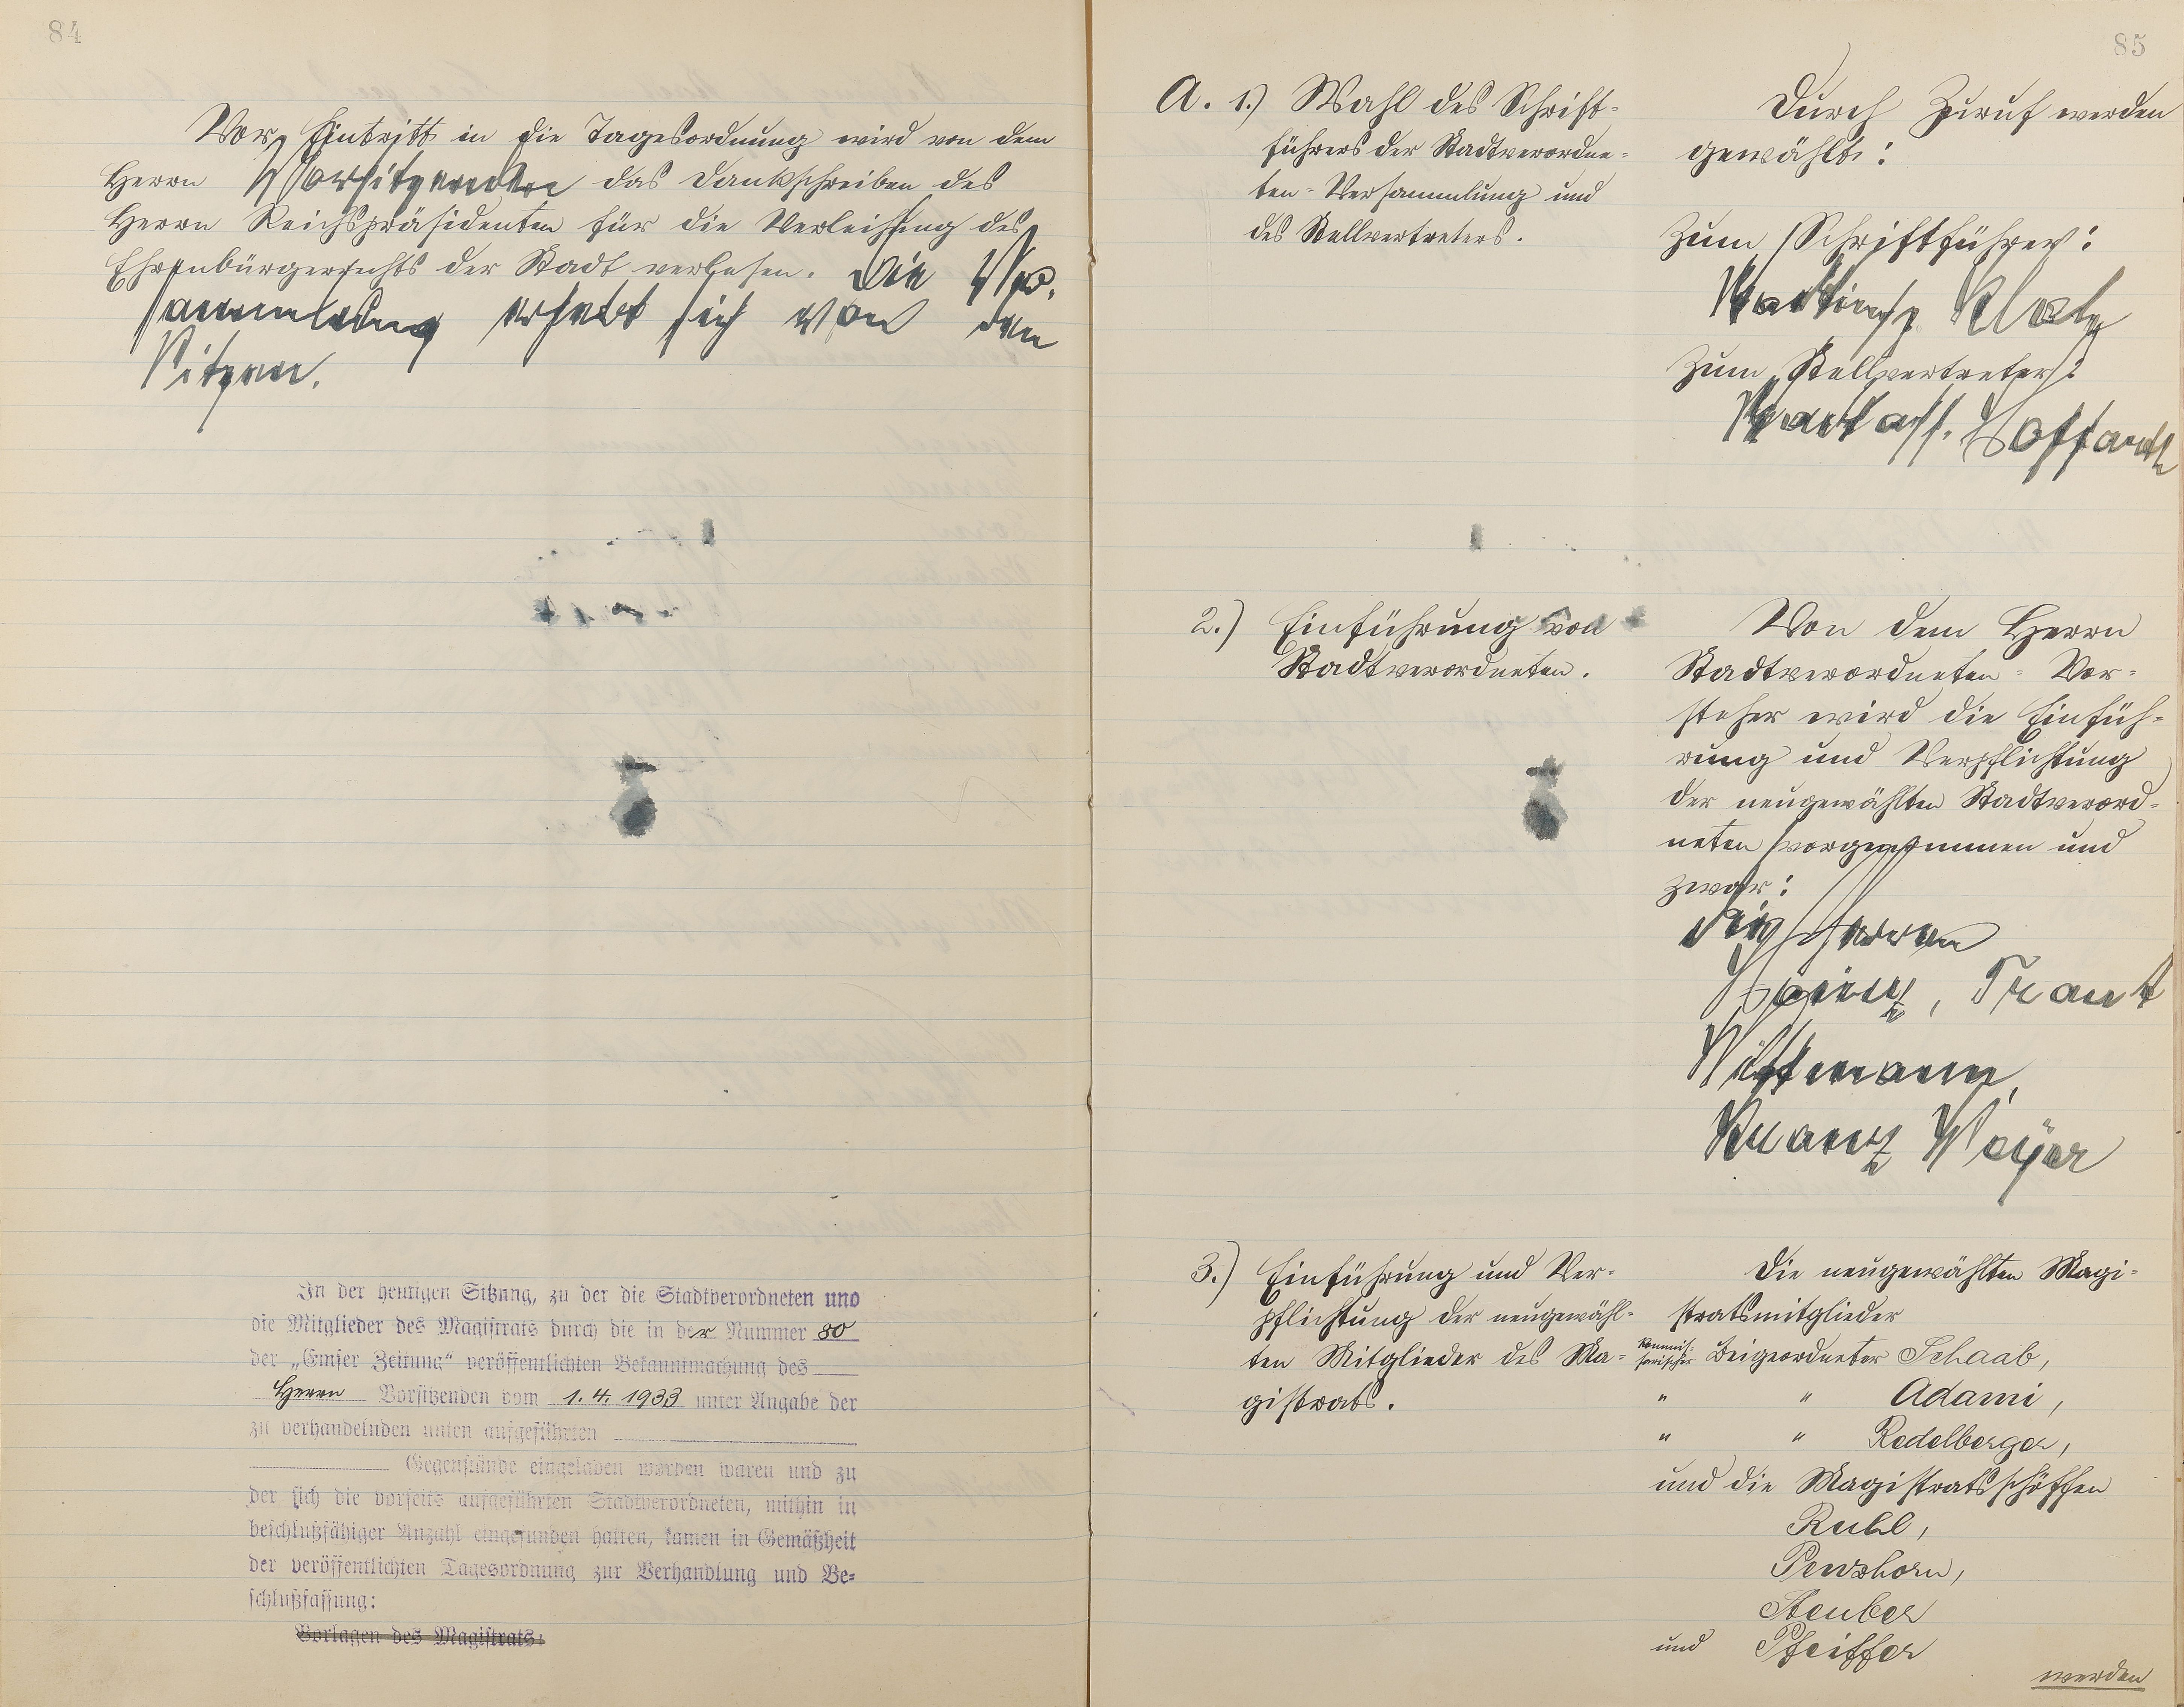 84
Vor Eintritt in die Tagesordnung wird von dem
Herrn Vorsitzenden das Dankschreiben des
Herrn Reichspräsidenten für die Verleihung des
Ehrenbürgerrechts der Stadt verlesen. Die Ver-
sammlung erhebt sich von den
Sitzen.
In der heutigen Sitzung, zu der die Stadtverordneten und
die Mitglieder des Magistrats durch die in der Nummer 80
der „Emser Zeitung“ veröffentlichten Bekanntmachung des
Herrn Vorsitzenden vom 1.4.1933 unter Angabe der
zu verhandelnden unten aufgeführten
Gegenstände eingeladen worden waren und zu
der sich die vorseits aufgeführten Stadtverordneten, mithin in
beschlußfähiger Anzahl eingefunden hatten, kamen in Gemäßheit
der veröffentlichten Tagesordnung zur Verhandlung und Be-
schlußfassung:
Vorlagen des Magistrats:
85
A. 1.) Wahl des Schrift-
führers der Stadtverordne-
ten-Versammlung und
des Stellvertreters.
Durch Zuruf werden
gewählt:
Zum Schriftführer:
Zum Stellvertreter:
2.) Einführung von
Stadtverordneten.
Von dem Herrn
Stadtverordneten-Vor-
steher wird die Einfüh-
rung und Verpflichtung
der neugewählten Stadtverord-
neten vorgenommen und
zwar:
die Herren
Traut
Wittmann,
Kranz Weyer
3.) Einführung und Ver-
pflichtung der neugewähl-
ten Mitglieder des Ma-
gistrats.
Die neugewählten Magi-
stratsmitglieder
kommis-
sarischer Beigeordneter Schaab,
" " Adami,
" " Redelberger,
und die Magistratsschöffen
Ruhl,
Pewshorn,
Steuber
und Pfeiffer
werden